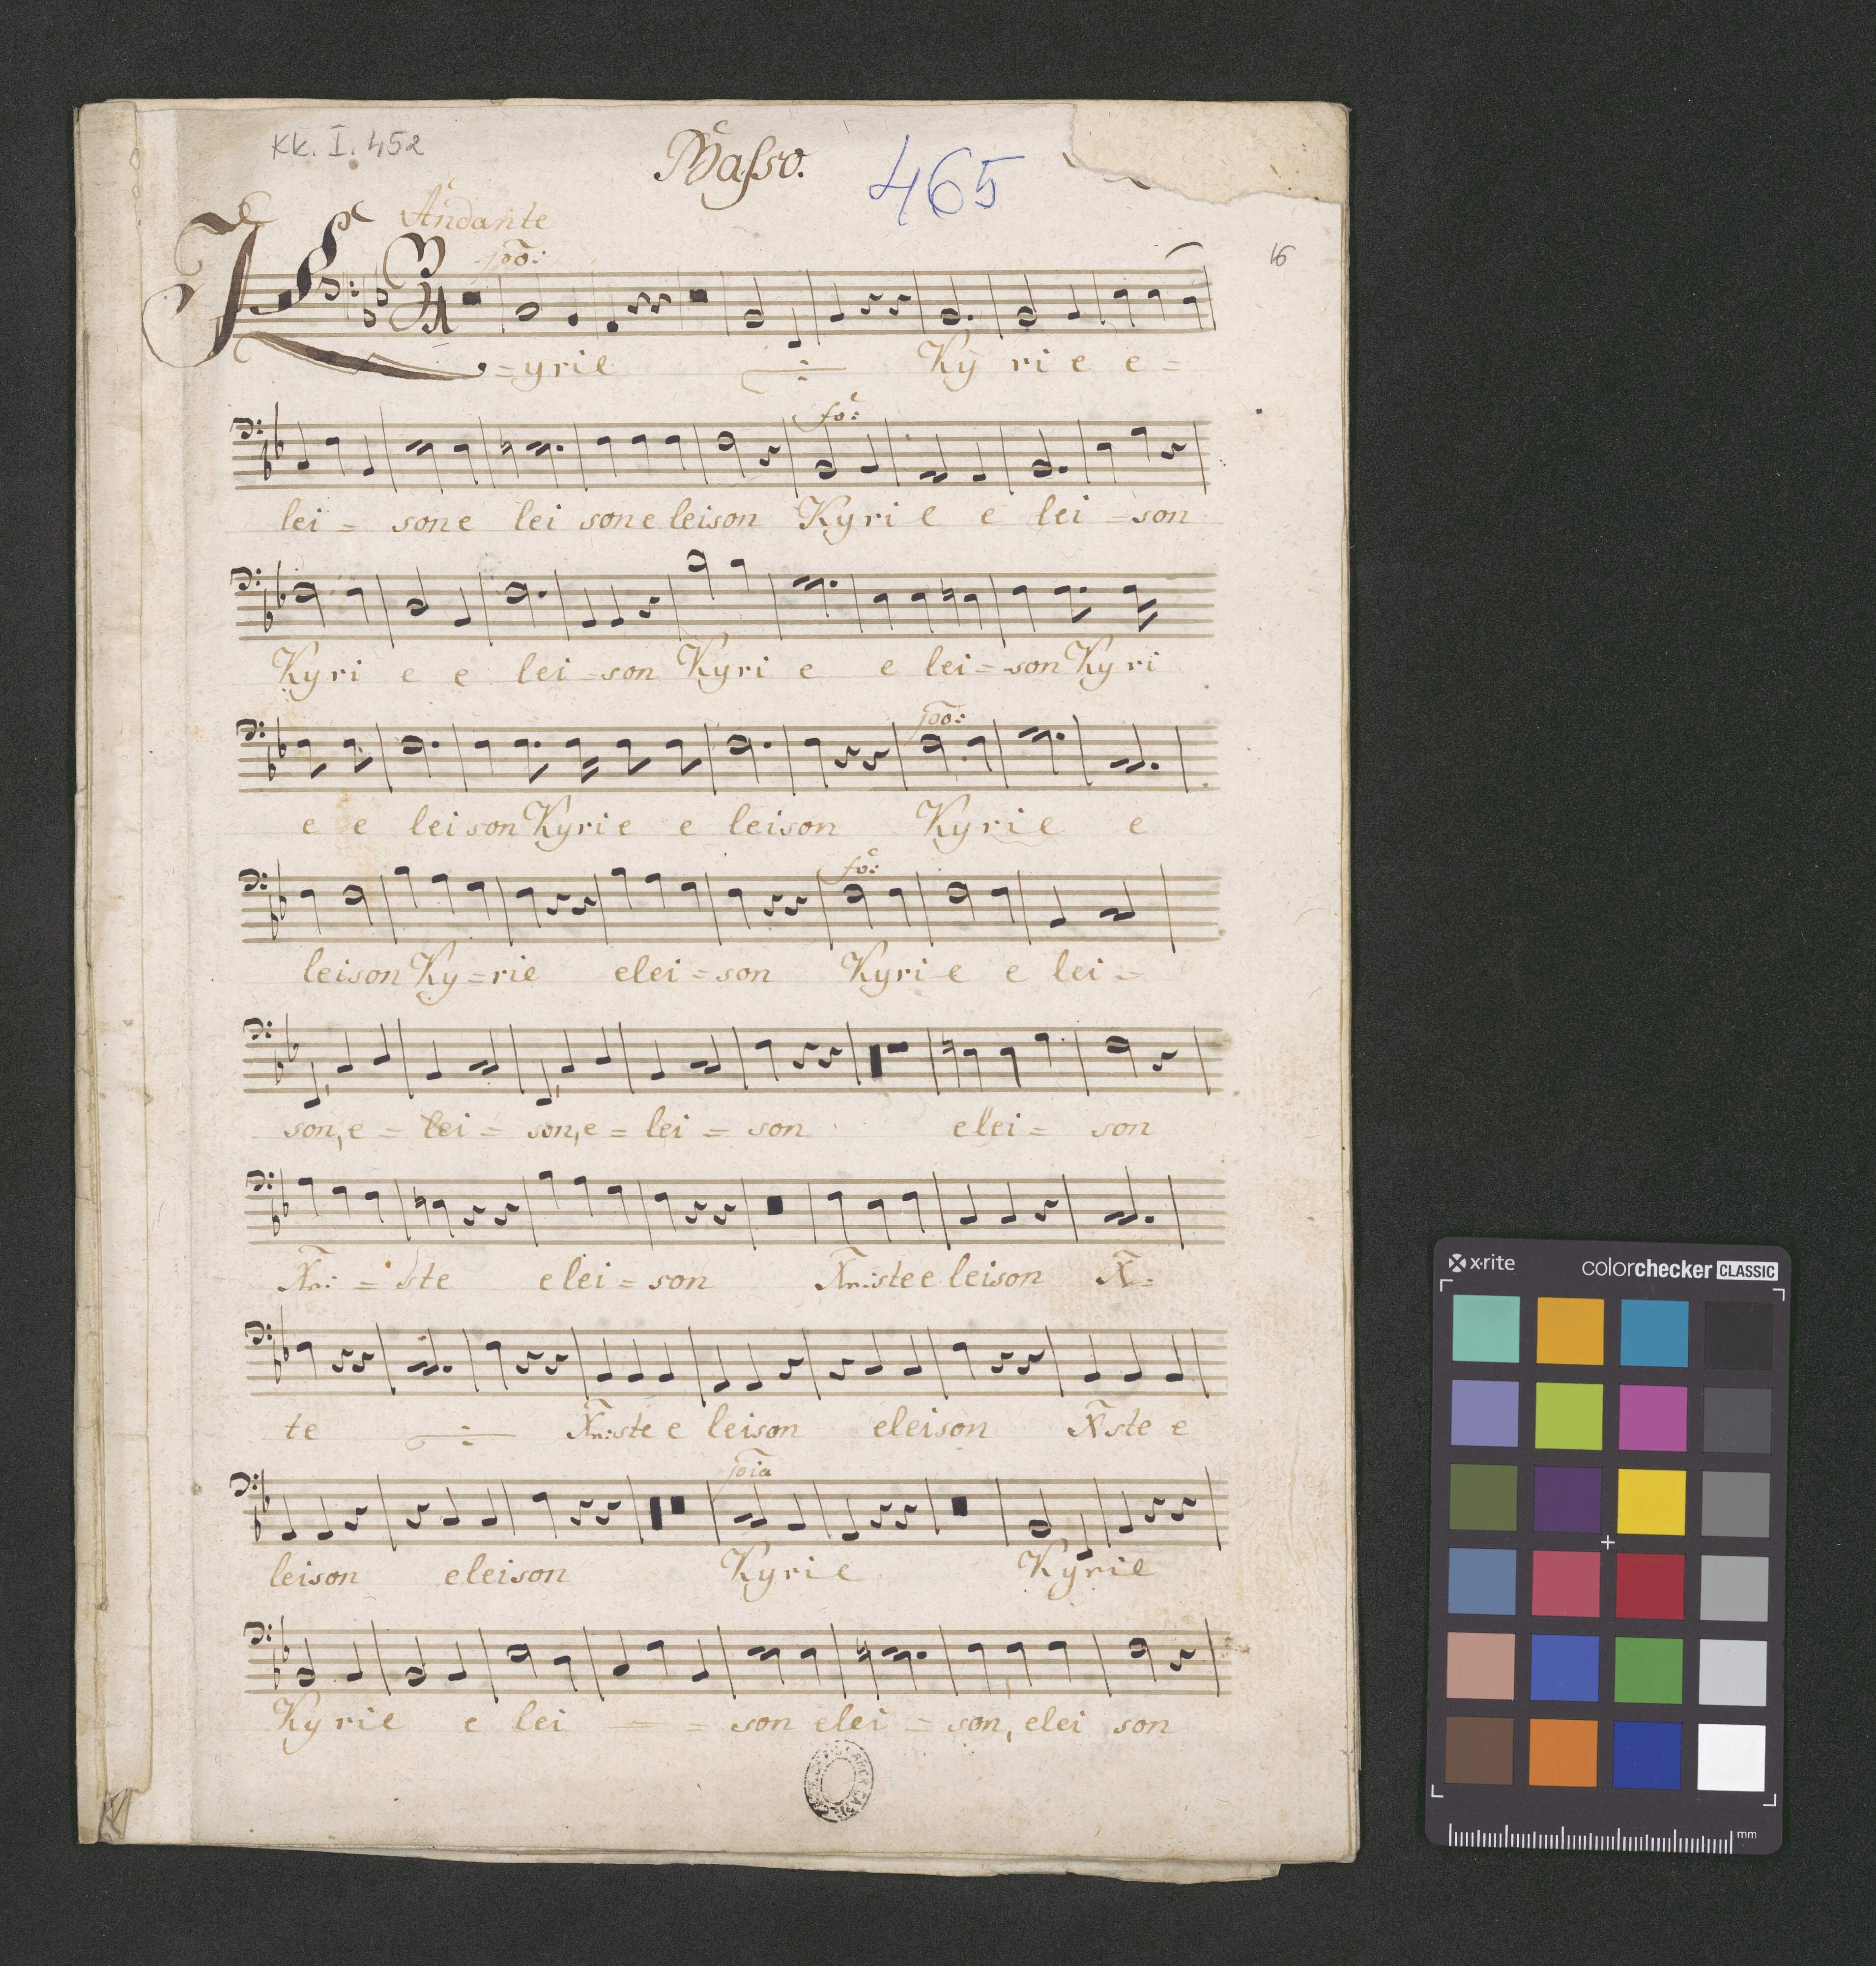 Kk. I. 452
Basso.
465
Andante
po:
16
Kyrie Ky ri e e =
fo:
lei = son e lei son e leison Kyri e e lei = son
Kyri e e lei = son Kyri e e lei = son Ky ri
po:
e e leison Kyrie e leison Kyrie e
fo:
leison Ky = rie elei = son Kyri e e lei =
son, e = lei = son, e = lei = son elei = son
Xr: = ste elei = son Xr: ste e leison X =
te Xr: ste e leison eleison Xste e
pia
leison eleison Kyrie Kyrie
Kyrie e lei = son elei = son, elei son
x·rite colorchecker CLASSIC
mm